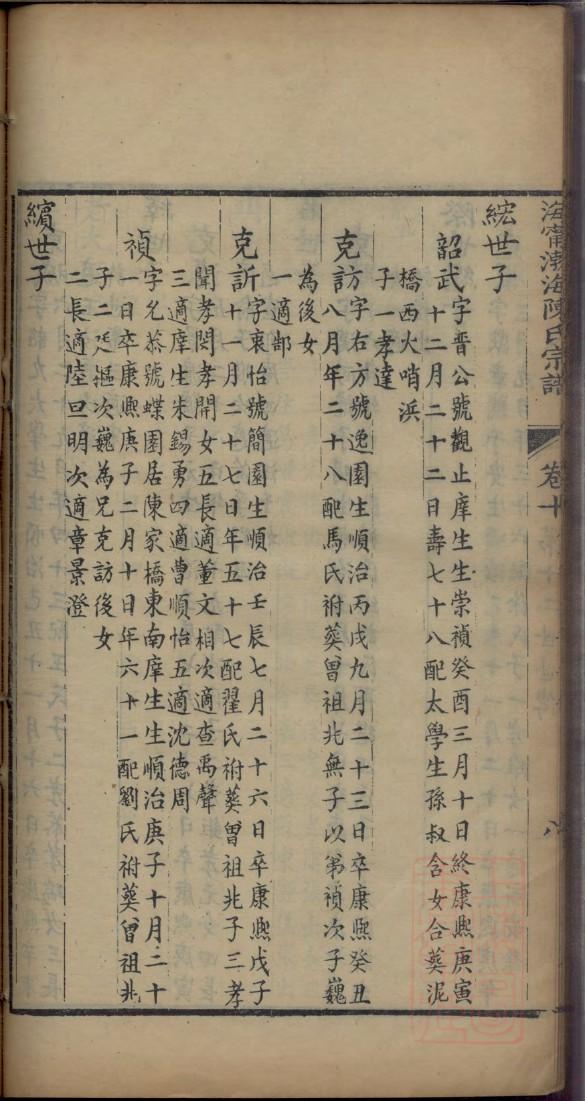 海甯渤海陳氏宗譜 卷十 八
紭世子
韶武字晋公號觀止庠生生崇禎癸酉三月十日終康熙庚寅
十二月二十二日壽七十八配太學生孫叔含女合葬泥
橋西火哨浜
子一孝達
克訪字右方號逸園生順治丙戌九月二十三日卒康熙癸丑
八月年二十八配馬氏祔葬曾祖兆無子以弟禎次子巍
為後女
一適郜
克訢字衷怡號簡園生順治壬辰七月二十六日卒康熙戊子
十一月二十七日年五十七配翟氏祔葬曾祖兆子三孝
聞孝閎孝開女五長適董文相次適查禹聲
三適庠生朱錫勇四適曹順怡五適沈德周
禎字允恭號蝶園居陳家橋東南庠生生順治庚子十月二十
一日卒康熙庚子二月十日年六十一配劉氏祔葬曾祖兆
子二廷樞次巍為兄克訪後女
二長適陸旦明次適章景澄
繽世子